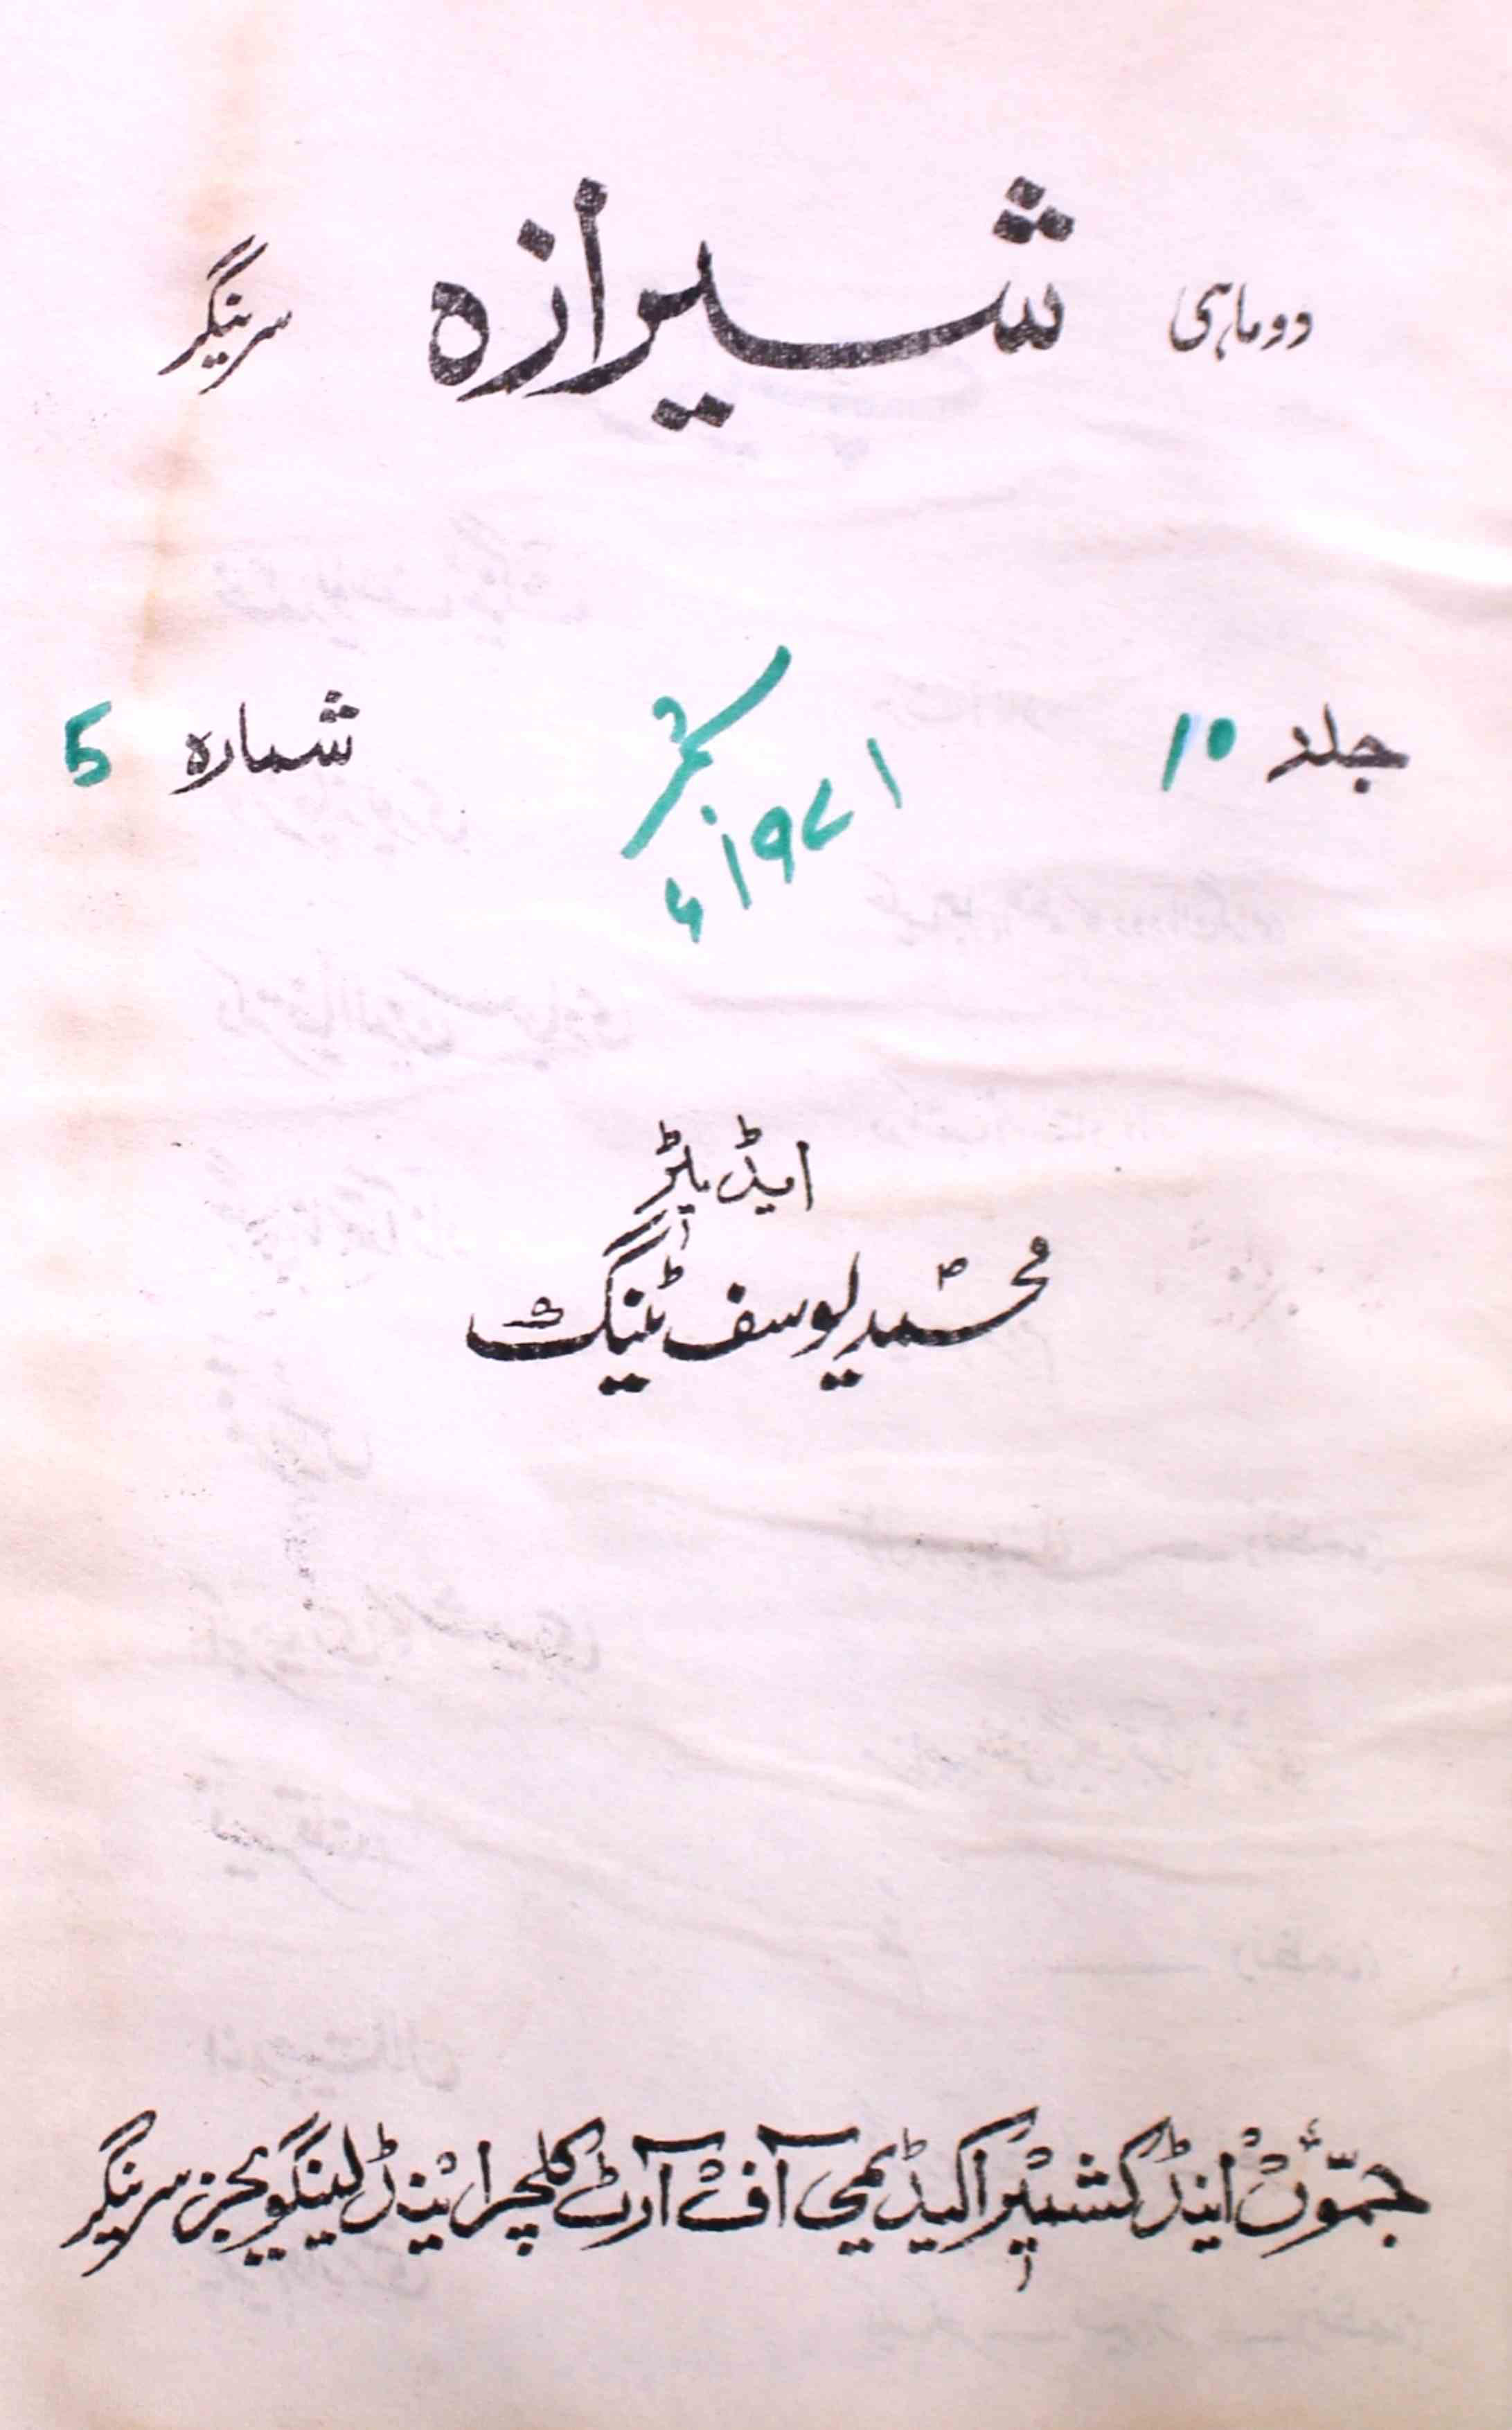 دوماہی شیرازہ سرینگر
جلد 10 ستمبر شمارہ 5
۱۹۷۱ء
ایڈیٹر
محمد یوسف ٹینگ
جموں اینڈ کشمیر اکیڈیمی آف آرٹ کلچر اینڈ لینگویجز سرینگر